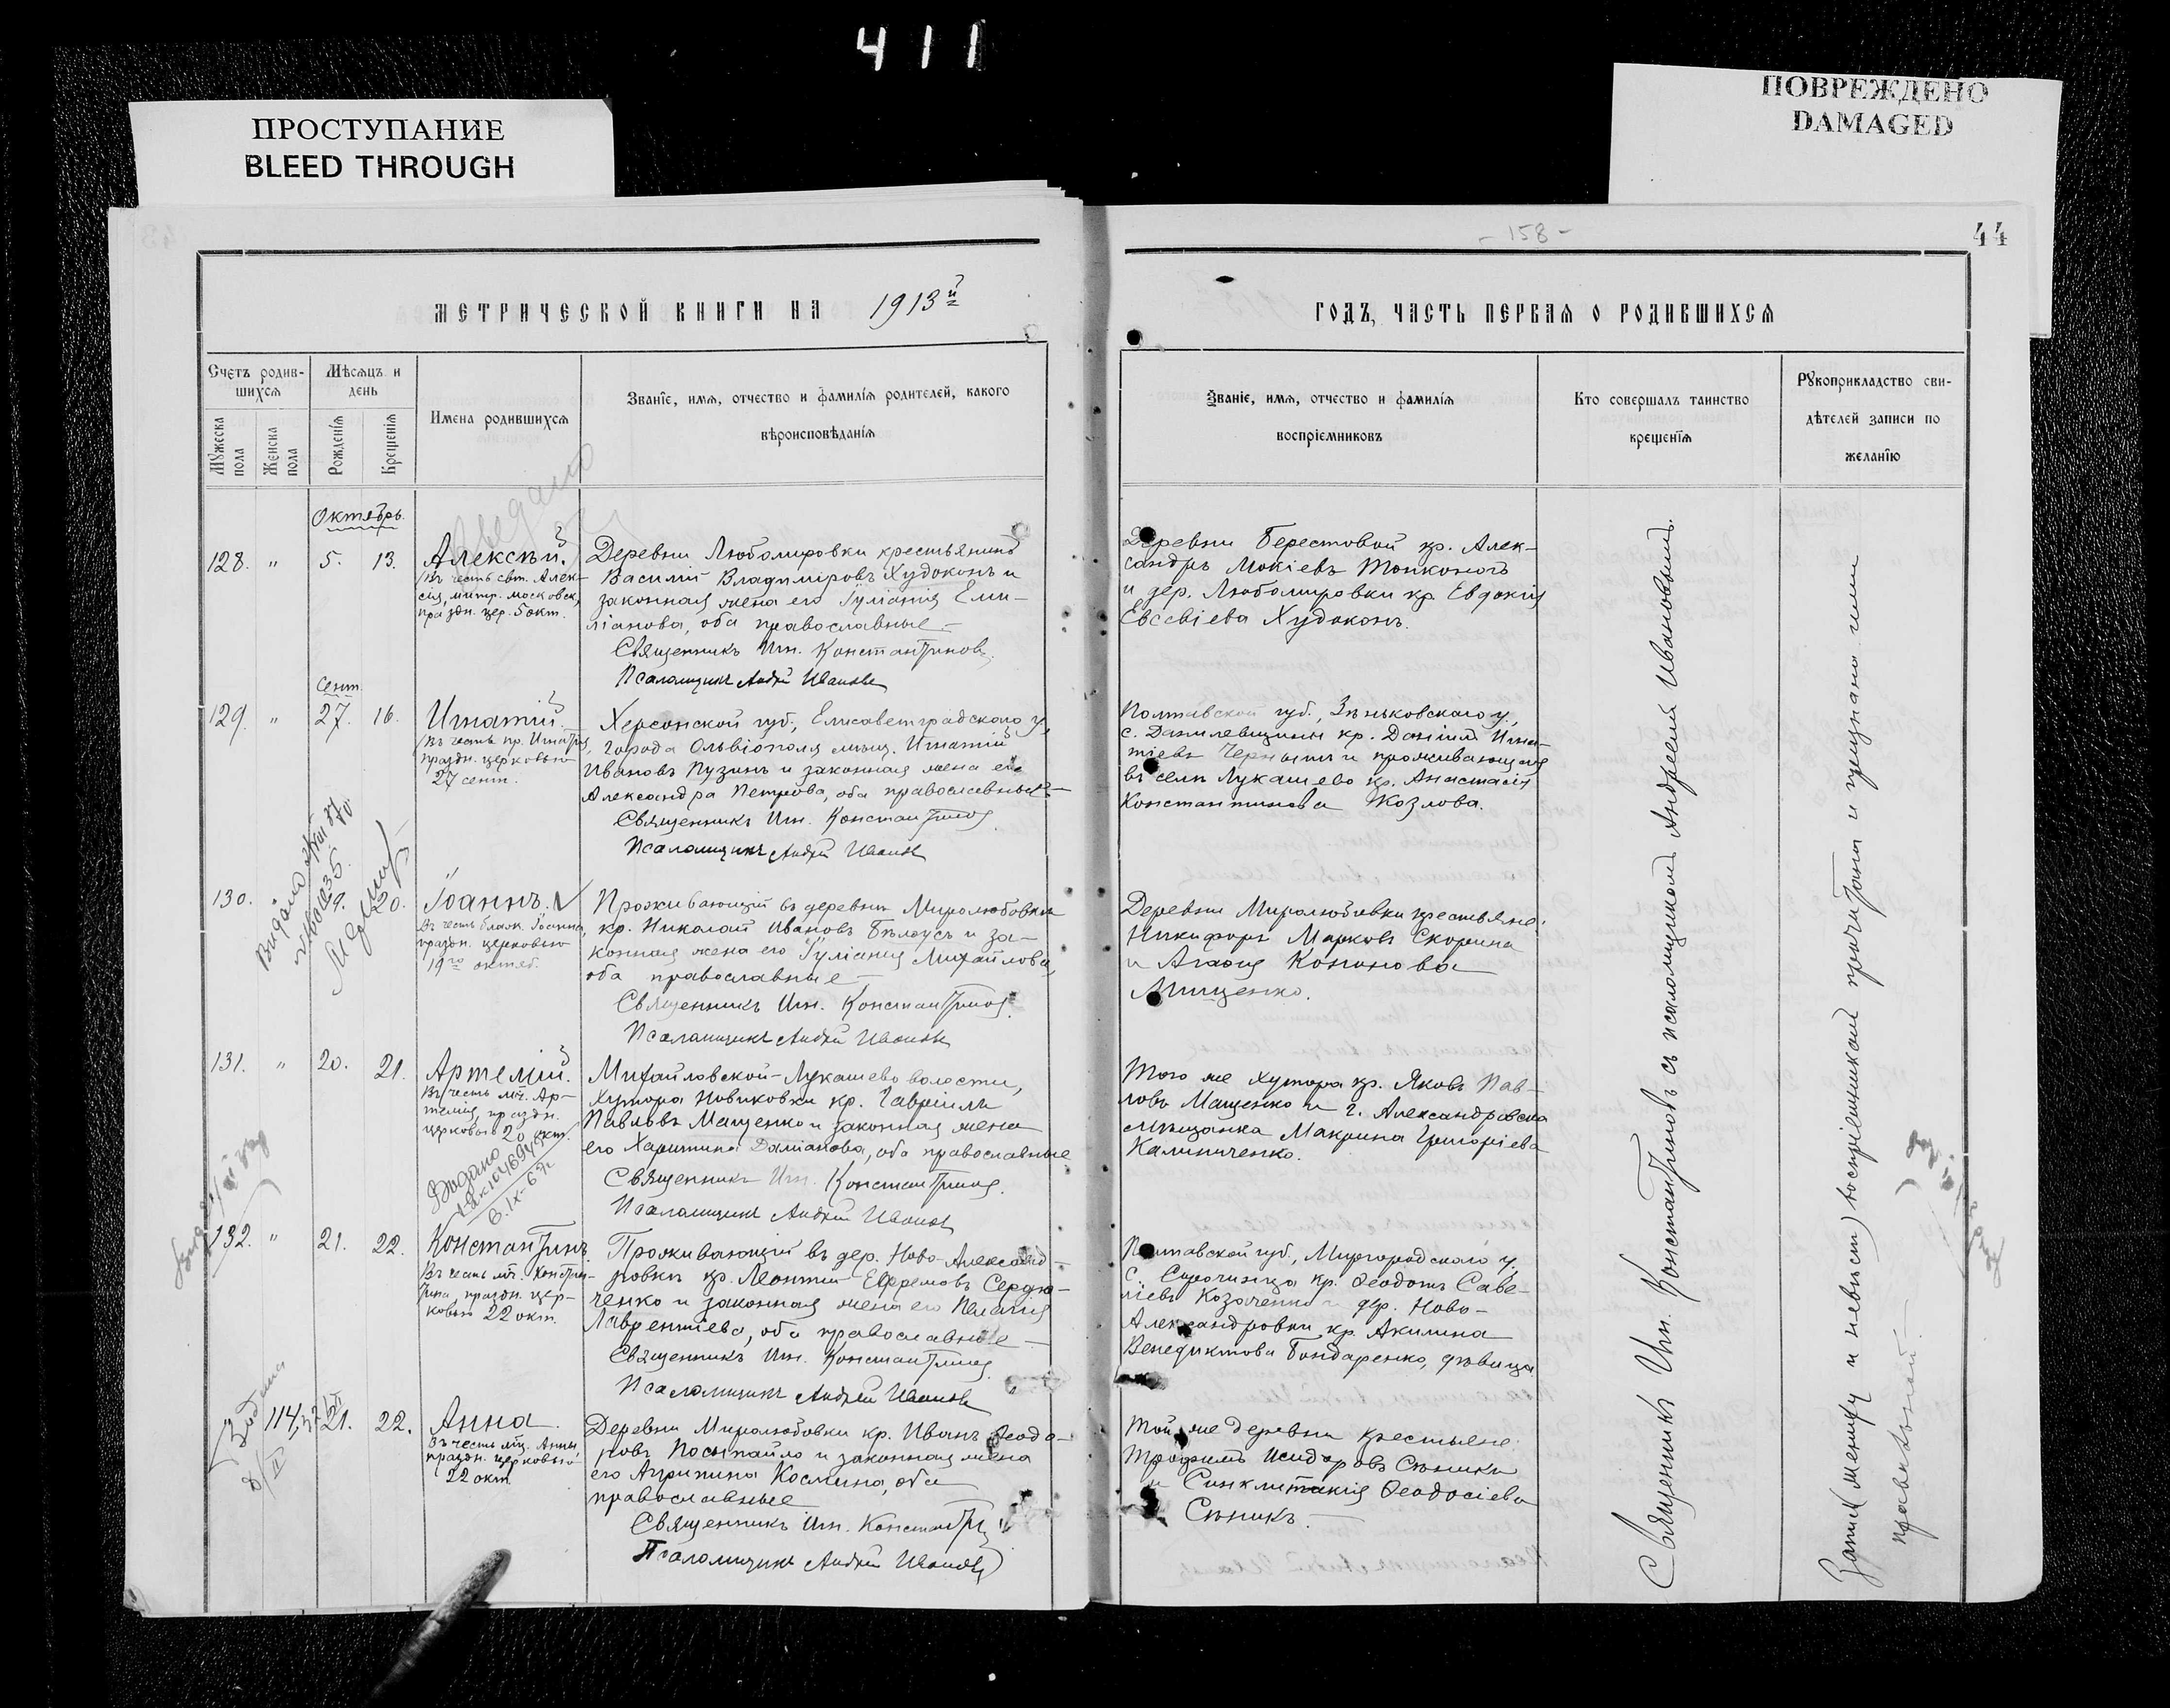 411
ПРОСТУПАНИЕ
BLEED THROUGH
ПОВРЕЖДЕНО
DAMAGED
МЕТРИЧЕСКОЙ КНИГИ НА 1913й
Счетъ родив-
шихся
Мѣсяцъ и
день
Мужеска
пола
Женска
пола
Рожденія
Крещенія
Имена родившихся
Званіе, имя, отчество и фамилія родителей, какого
вѣроисповѣданія
Октябрь.
128. " 5. 13.
Алексѣй.
Въ честь свт. Алек-
сія, митр. московск,
праздн. цер. 5 окт.
Деревни Любомировки крестьянинъ
Василій Владиміровъ Худоконъ и
законная жена его Іуліанія Еми-
ліанова, оба православные –
Священникъ Ин. Константиновъ.
Псаломщикъ Андрей Ивановъ
Сент.
129. " 27. 16.
Игнатій.
Въ честь пр. Игнатія,
праздн. церковью
27 сент.
Херсонской губ., Елисаветградского у,
города Ольвіополя мѣщ. Игнатій
Ивановъ Пузинъ и законная жена его
Александра Петрова, оба православные –
Священникъ Ин. Константиновъ
Псаломщикъ Андрей Ивановъ
Видано
130. 19. 20.
Іоаннъ.
Въ честь блаж. Іоанна,
праздн. церковью
19го октяб.
Проживающій въ деревни Миролюбовки
кр. Николай Ивановъ Бѣлоусъ и за-
конная жена его Іуліанія Михайлова,
оба православные –
Священникъ Ин. Константиновъ.
Псаломщикъ Андрей Ивановъ
131. " 20. 21.
Артемій.
Въ честь мч. Ар-
темія, праздн.
церковью 20 окт.
Михайловской-Лукашево волости,
хутора Новиковки кр. Гавріилъ
Павловъ Мащенко и законная жена
его Харитина Даміанова, оба православные
Священникъ Ин. Константиновъ.
Псаломщикъ Андрей Ивановъ
Видано
132. " 21. 22.
Константинъ
Въ честь мч. Констан-
тина, праздн. цер-
ковью 22 окт.
Проживающій въ дер. Ново-Александ-
ровки кр. Леонтій Ефремовъ Сердю-
ченко и законная жена его Пелагія
Лаврентіева, оба православные –
Священникъ Ин. Константиновъ.
Псаломщикъ Андрей Ивановъ
114. 21. 22.
Анна.
Въ честь мц. Анны,
праздн. церковью
22 окт.
Деревни Миролюбовки кр. Иванъ Ѳеодо-
ровъ Посыпайло и законная жена
его Агрипина Космина, оба
православные
Священникъ Ин. Константиновъ
Псаломщикъ Андрей Ивановъ
- 158 -
44
ГОДЪ, ЧАСТЬ ПЕРВАЯ О РОДИВШИХСЯ
Званіе, имя, отчество и фамилія
воспріемниковъ
Кто совершалъ таинство
крещенія
Рукоприкладство сви-
дѣтелей записи по
желанію
Деревни Берестовой кр. Алек-
сандръ Мокіевъ Тонконогъ
и дер. Любомировки кр. Евдокія
Евсевіева Худоконъ.
Полтавской губ., Зѣньковского у.,
с. Данилевщины кр. Даніилъ Игна-
тіевъ Черныш и проживающая
въ селѣ Лукашево кр. Анастасія
Константинова Козлова.
Деревни Миролюбовки крестьяне:
Никифоръ Марковъ Скорина
и Агаѳія Кононова
Мищенко.
Того же хутора кр. Яковъ Пав-
ловъ Мащенко и г. Александровска
мѣщанка Макрина Григоріева
Калиниченко.
Полтавской губ., Миргородского у.
с. Сорочинца кр. Ѳеодотъ Саве-
ліевъ Козаченко и дер. Ново-
Александровки кр. Акилина
Венедиктова Бондаренко, дѣвица
Той же деревни крестьяне:
Трофимъ Исидоровъ Сѣникъ
и Синклитикія Ѳеодосіева
Сѣникъ. –
Священникъ Ин. Константиновъ съ псаломщикомъ Андреемъ Ивановымъ.